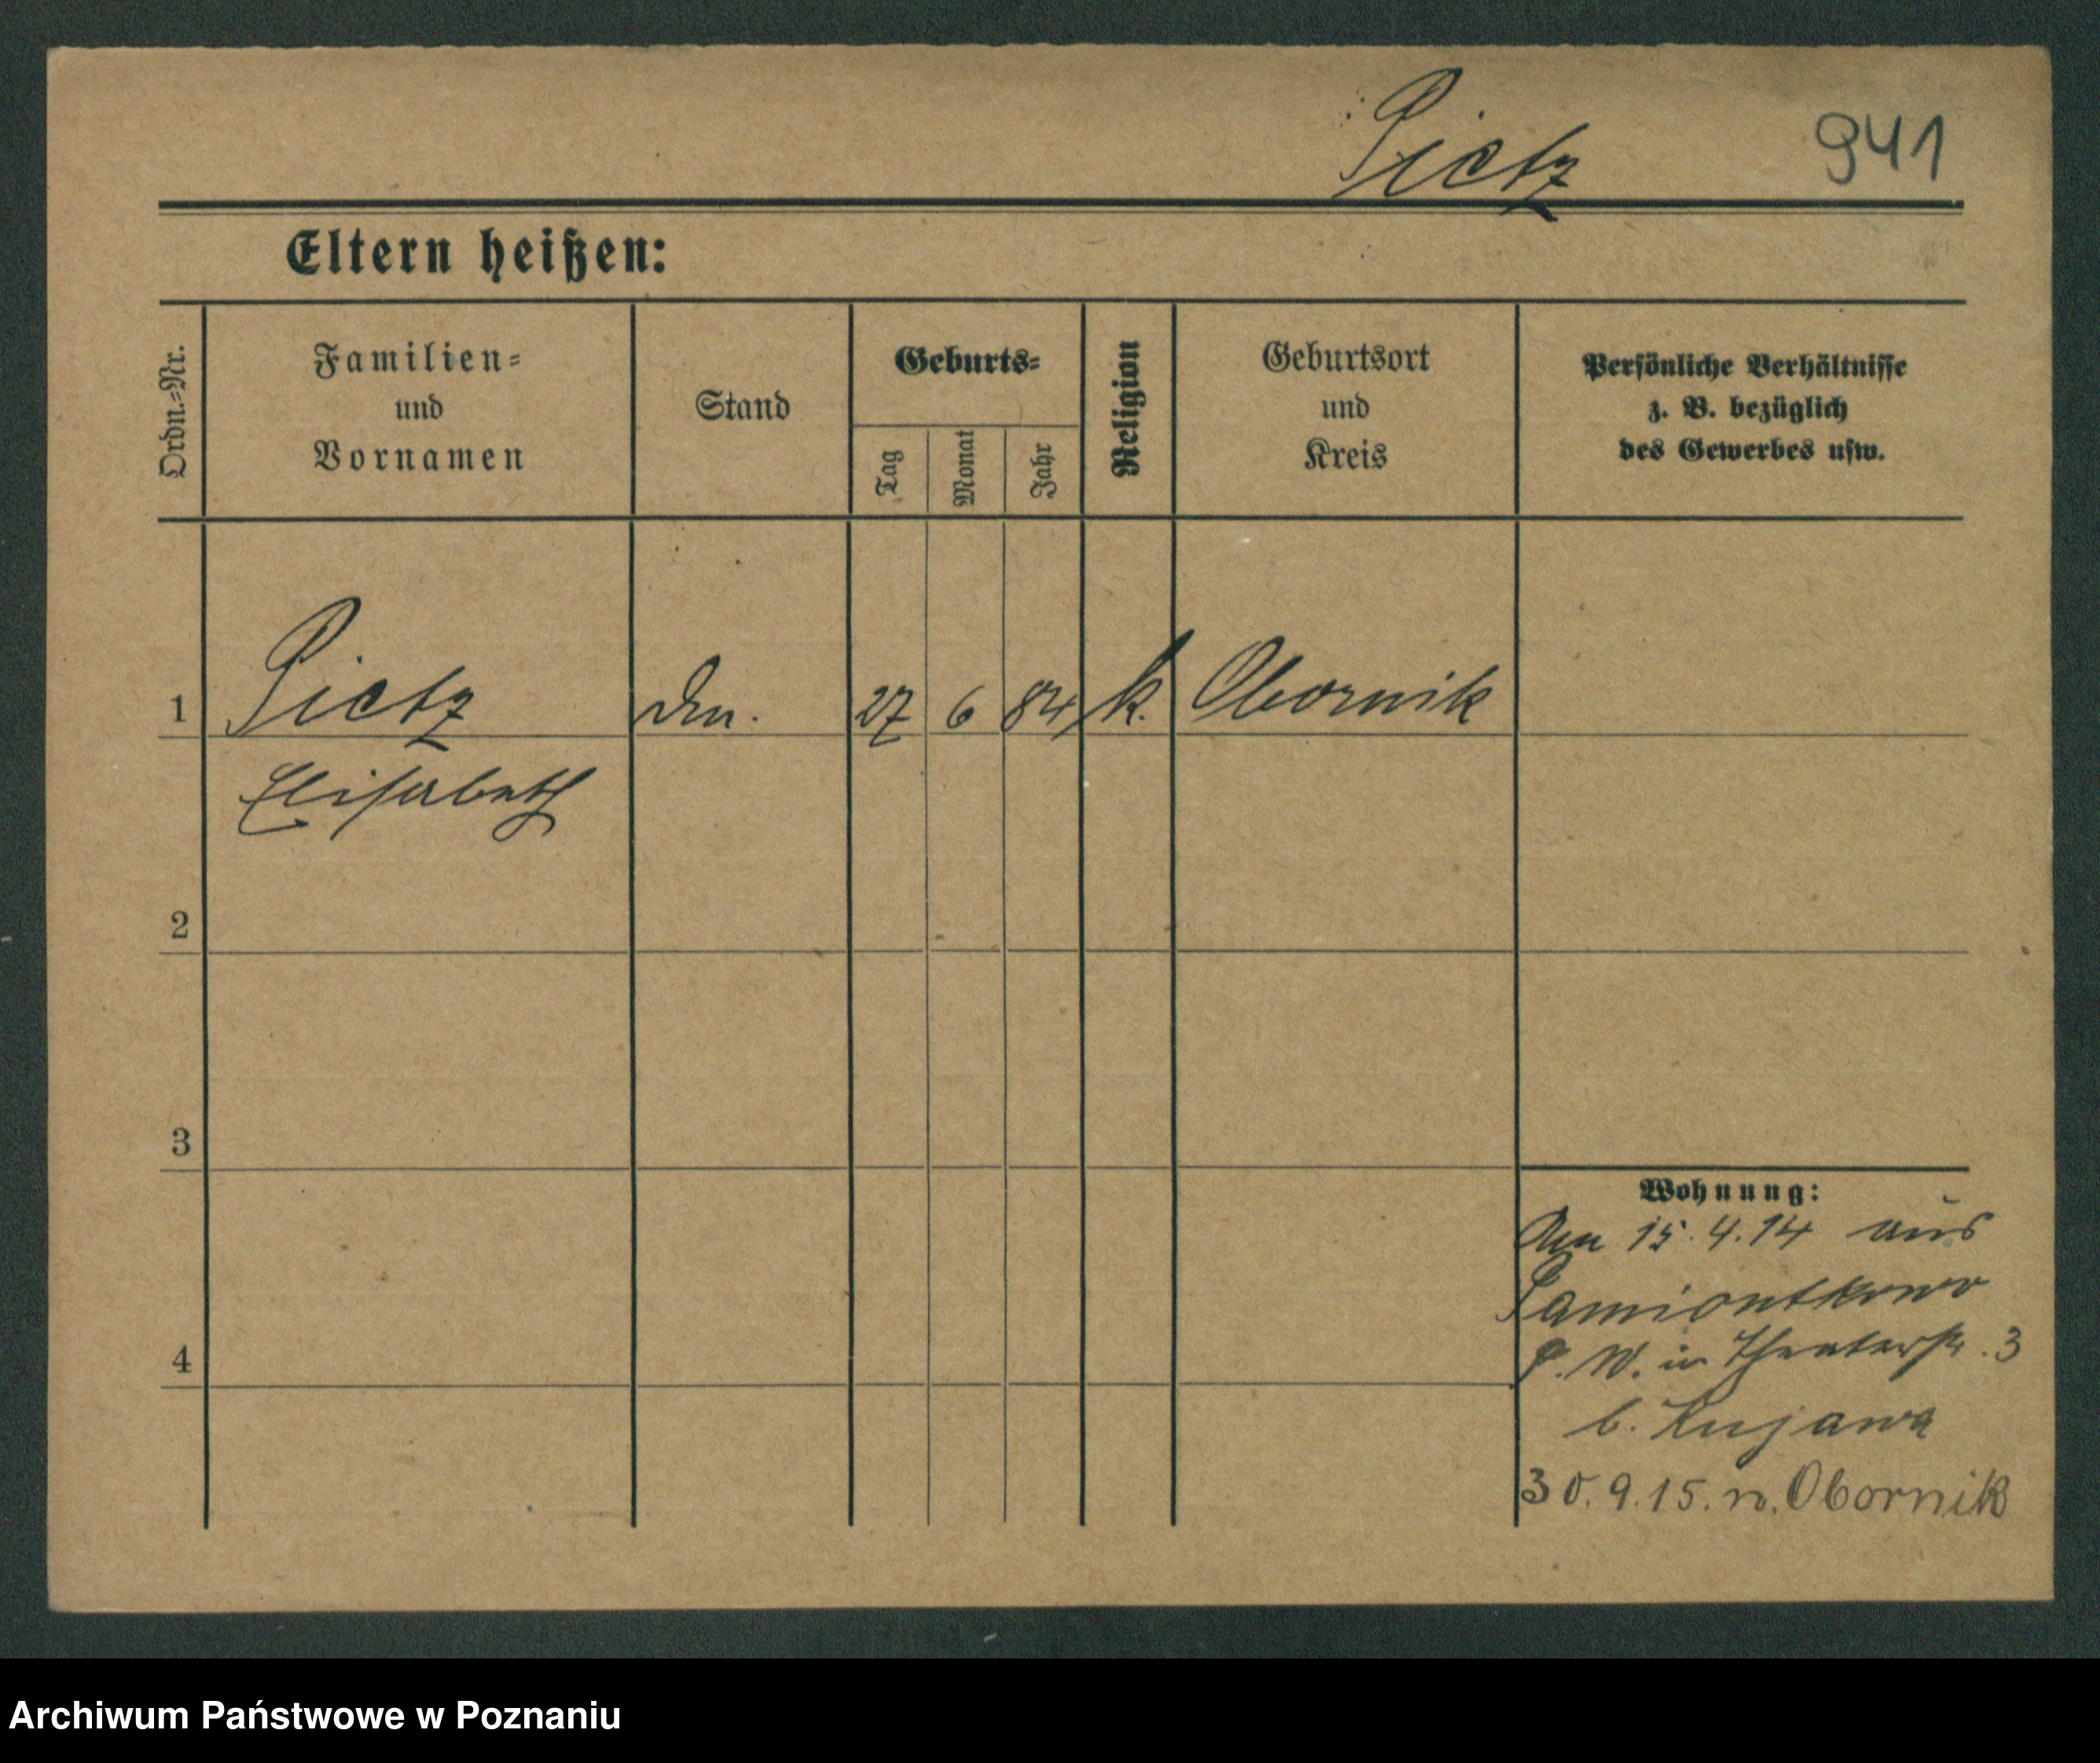 Pietz
941
Eltern heißen:
Ordn.=Nr.
Familien=
und
Vornamen
Stand
Geburts=
Tag
Monat
Jahr
Religion
Geburtsort
und
Kreis
Persönliche Verhältnisse
z. B. bezüglich
des Gewerbes usw.
1 Pietz 27 6 84 k. Obornik
Elisabeth
2
3
4
Wohnung:
15.4.14 aus
Pamiontkowo
P. W. in Theaterstr. 3
b. Kujawa
30.9.15. n. Obornik
Archiwum Państwowe w Poznaniu